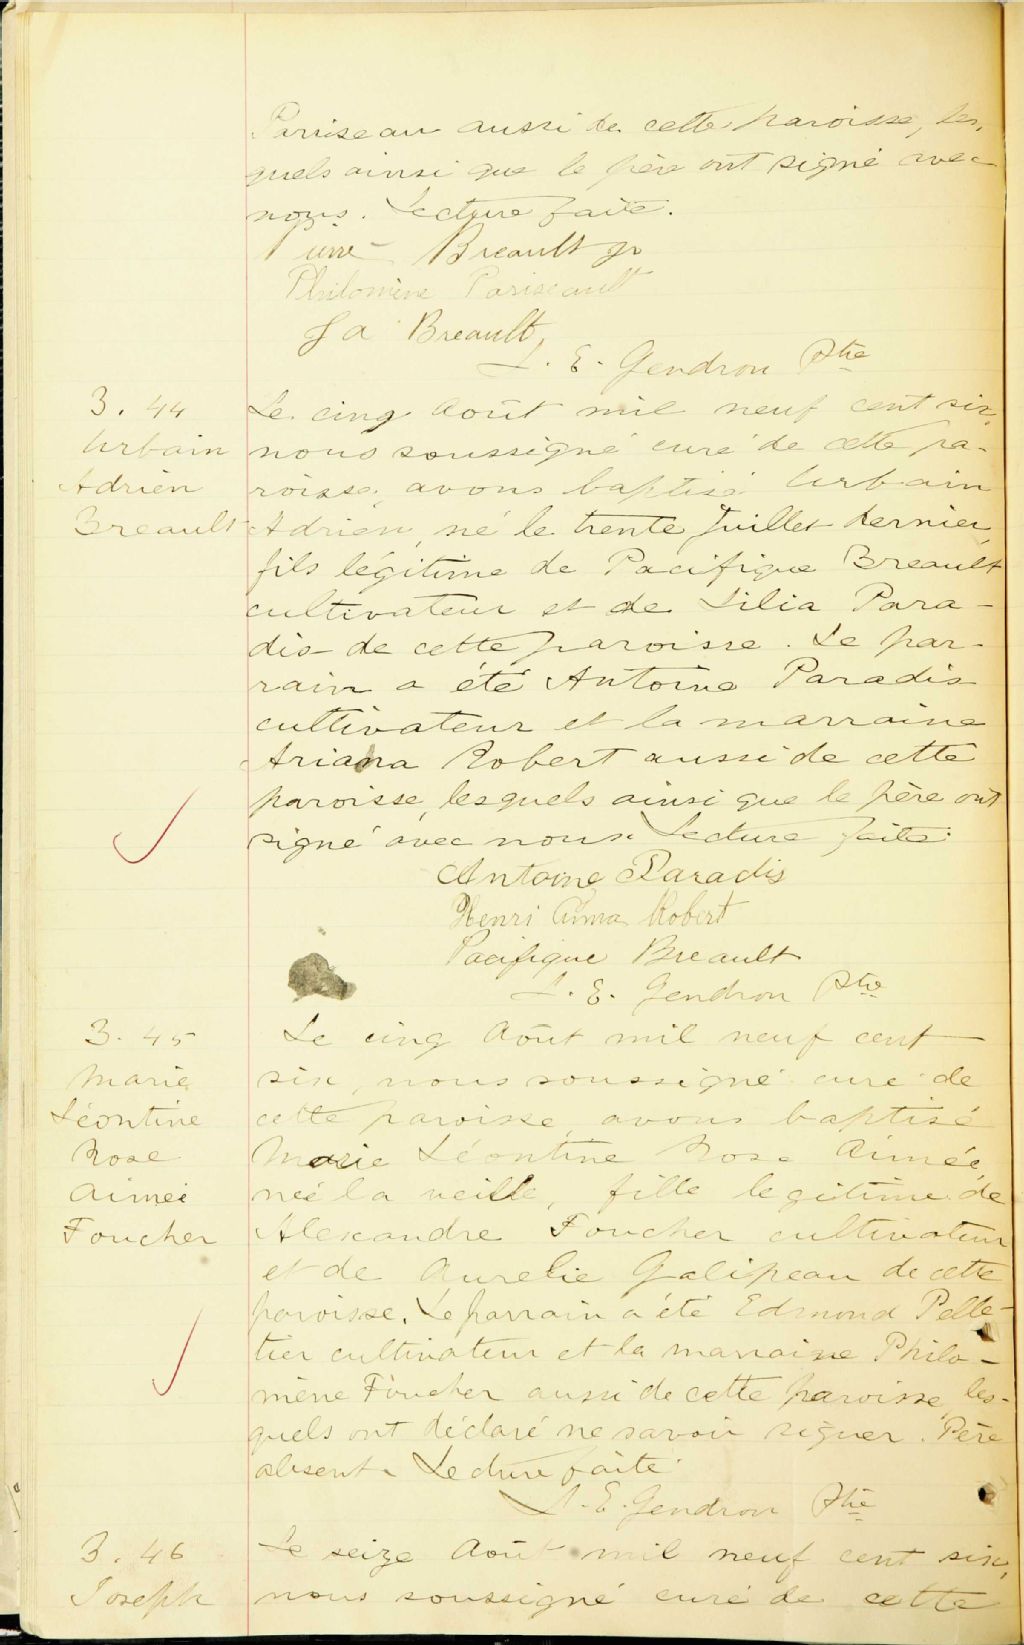 Pariseau aussi de cette paroisse, les-
quels ainsi que le père ont signé avec
nous. Lecture faite.
Breault jr
Philomène Pariseault
Ja Breault
L. E. Gendron Ptre
B. 44
Urbain
Adrien
Breault
Le cinq Août mil neuf cent six,
nous soussigné curé de cette pa-
roisse, avons baptisé Urbain
Adrien, né le trente Juillet dernier,
fils légitime de Pacifique Breault
cultivateur et de Lilia Para-
dis de cette paroisse. Le par-
rain a été Antoine Paradis
cultivateur et la marraine
Ariana Robert aussi de cette
paroisse, lesquels ainsi que le père ont
signé avec nous. Lecture faite.
Antoine Paradis
Henri Robert
Pacifique Breault
L. E. Gendron Ptre
B. 45
Marie
Léontine
Rose
Aimée
Foucher
Le cinq Août mil neuf cent
six, nous soussigné curé de
cette paroisse, avons baptisé
Marie Léontine Rose Aimée,
née la veille, fille legitime de
Alexandre Foucher cultivateur
et de Aurelie Galipeau de cette
paroisse. Le parrain a été Edmond Pelle-
tier cultivateur et la marraine Philo-
mène Foucher aussi de cette paroisse les-
quels ont déclaré ne savoir signer. Père
absent. Lecture faite.
L. E. Gendron Ptre
B. 46
Joseph
Le seize Août mil neuf cent six,
nous soussigné curé de cette